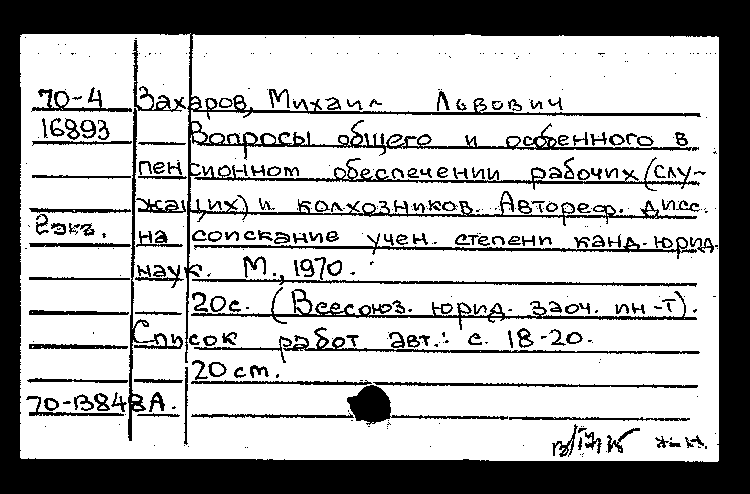 70-4 Захаров, Михаил Львович
16893 Вопросы общего и особенного в
пенсионном обеспечении рабочих (слу-
жащих) и колхозников. Автореф. дисс.
2экз. на соискание учен. степени канд. юрид.
наук. М., 1970.
20с. (Всесоюз. юрид. заоч. ин-т).
Список работ авт.: с. 18-20.
20 см.
70-В848А.